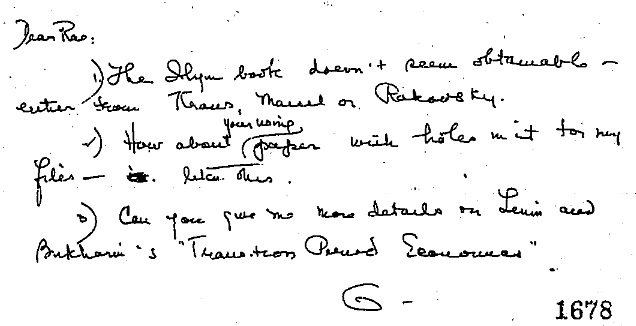 Dear Rae:
1) The Ilyin book doesn't seem obtainable –
either from Kraus, Maurel or Rakovsky.
2) How about your using paper with holes in it for my
files – like this.
3) Can you give me more details on Lenin and
Bukharin's "Transition Period Economics".
G –
1678